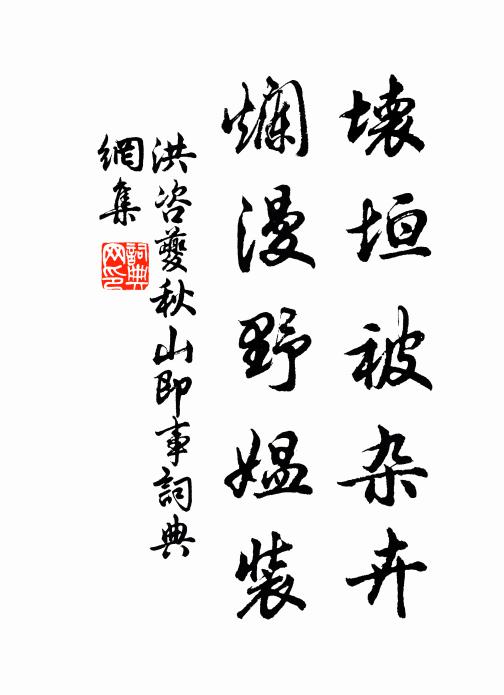 壊垣被杂卉
爛漫野媪裝
洪咨夔秋山即事詞典
網集
詞典
网印